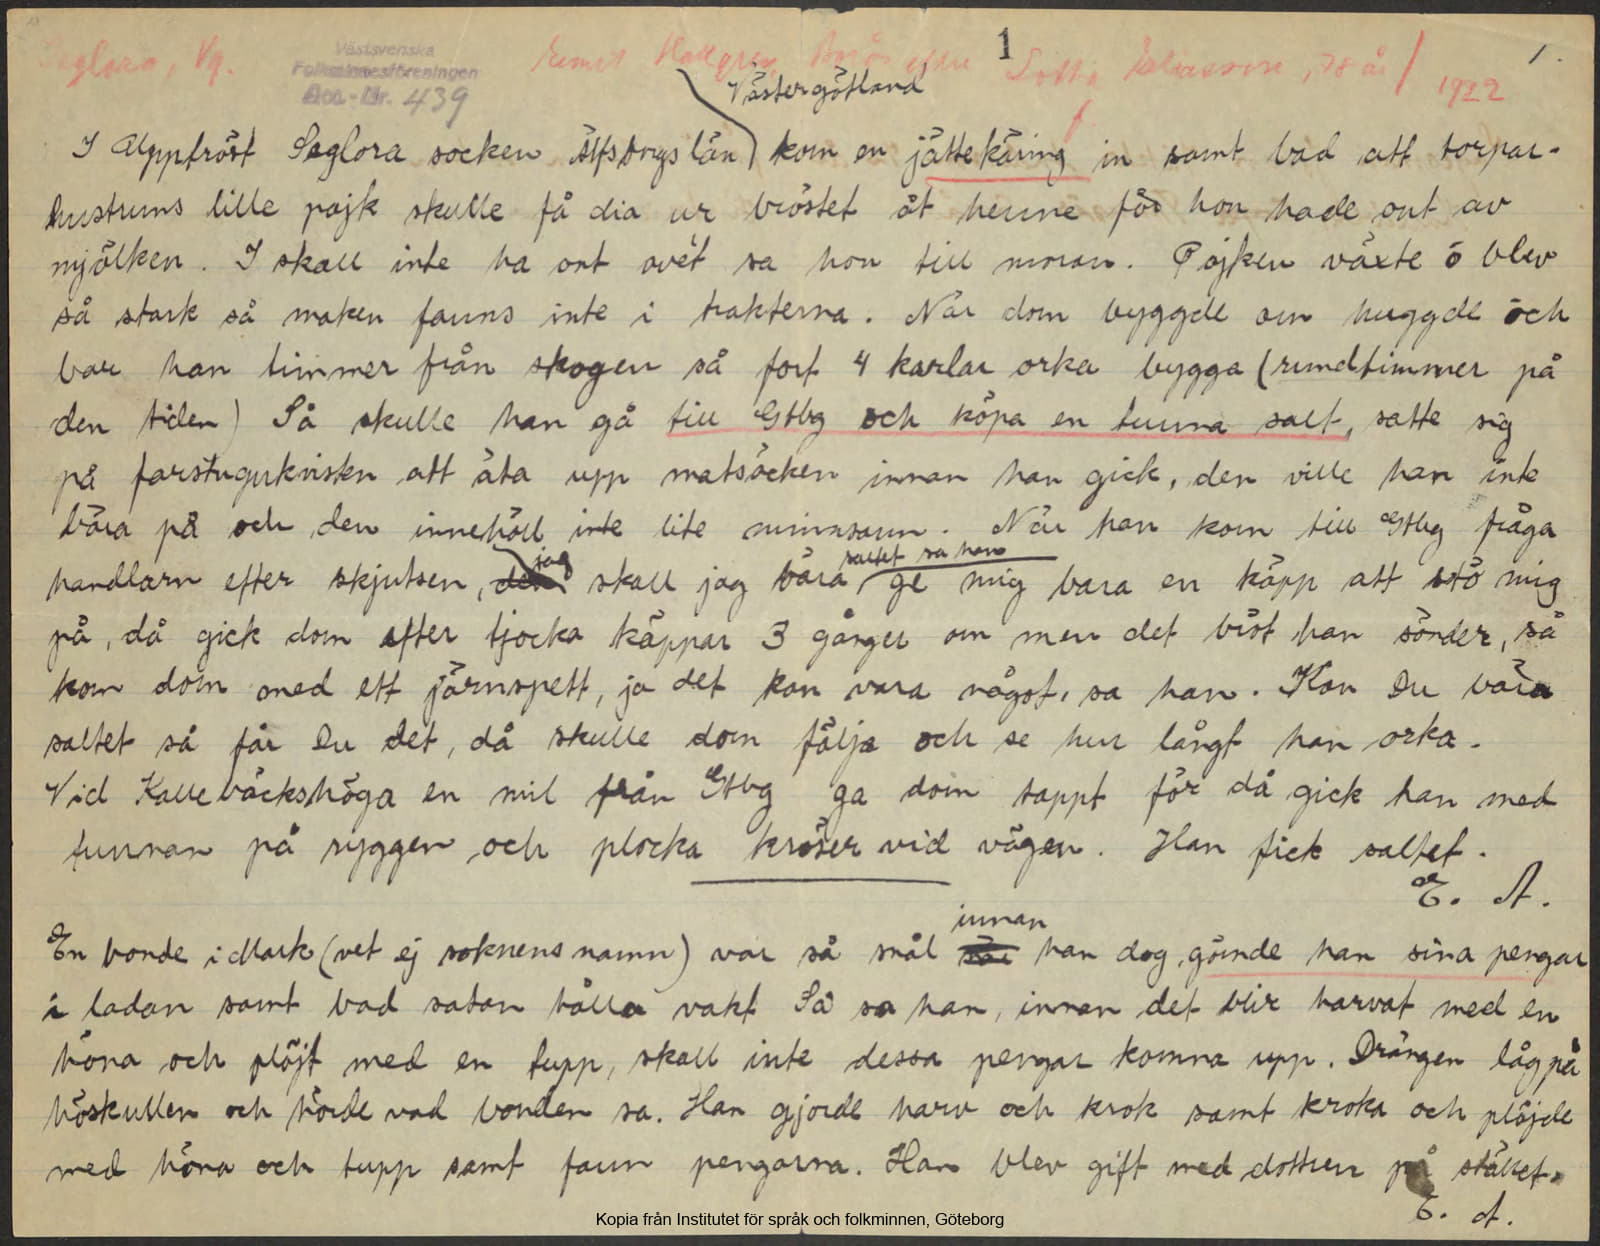 1
1.
Seglora, Vg.
Västsvenska
Folkminnesföreningen
Acc.-Nr. 439
1922
Västergötland
I Uppfröst Seglora socken Älfsborgs län kom en jättekäring in samt bad att torpar-
hustruns lille pojk skulle få dia ur bröstet åt henne för hon hade ont av
mjölken. I skall inte ha ont avet sa hon till moran. Pojken växte ö blev
så stark så maken fanns inte i trakterna. När dom byggde om huggde och
bar han timmer från skogen så fort 4 karlar orka bygga (rundtimmer på
den tiden) Så skulle han gå till Gtbg och köpa en tunna salt, satte sig
på farstugukvisten att äta upp matsäcken innan han gick, den ville han inte
bära på och den innehöll inte lite minnsann. När han kom till Gtbg fråga
handlarn efter skjutsen, jag skall jag bära saltet sa han ge mig bara en käpp att stö mig
på, då gick dom efter tjocka käppar 3 gånger om men det bröt han sönder, så
kom dom med ett järnspett, ja det kan vara något, sa han. Kan Du bära
saltet så får Du det, då skulle dom följa och se hur långt han orka.
Vid Kallebäckshöga en mil från Gtbg ga dom tappt för då gick han med
tunnan på ryggen och plocka kröser vid vägen. Han fick saltet.
E. A.
En bonde i Mark (vet ej soknens namn) var så snål innan han dog gömde han sina pengar
i ladan samt bad satan hålla vakt Så sa han, innan det blir harvat med en
höna och plöjt med en tupp, skall inte dessa pengar komma upp. Drängen låg på
höskullen och hörde vad bonden sa. Han gjorde harv och krok samt kroka och plöjde
med höna och tupp samt fann pengarna. Han blev gift med dottern på stället.
E. A.
Kopia från Institutet för språk och folkminnen, Göteborg